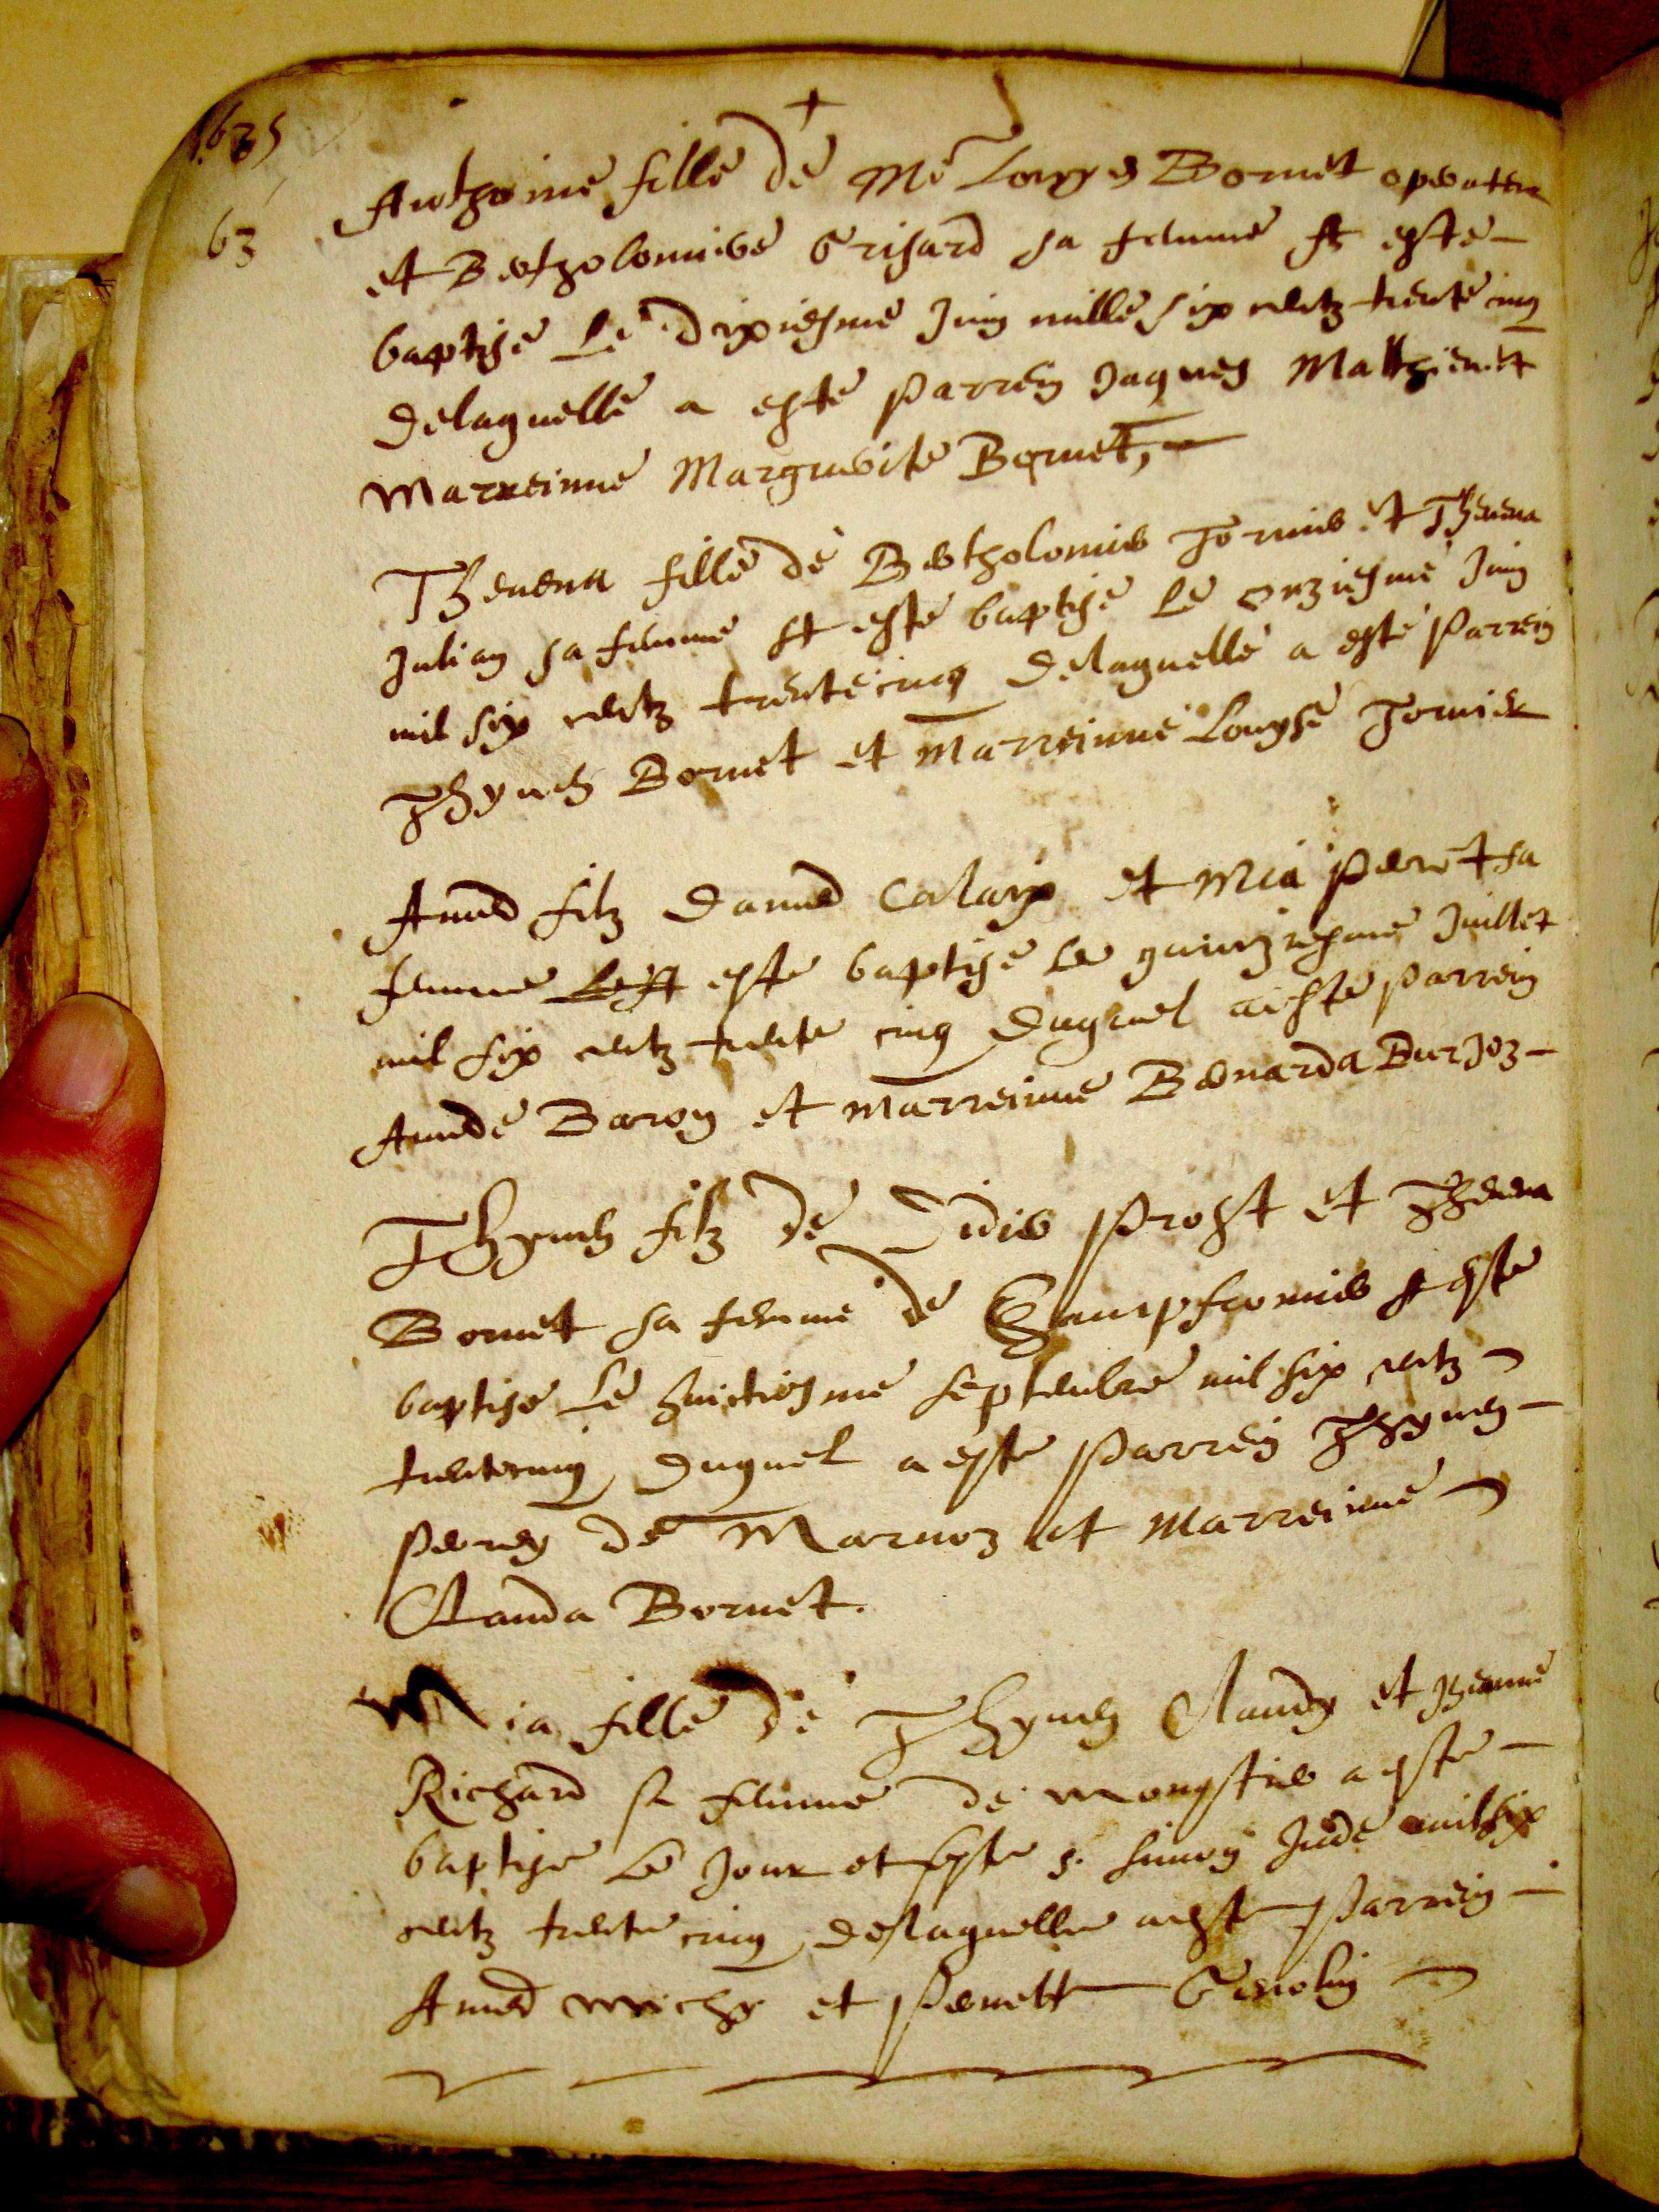 1635
63
Anthoine fille de Me Loyys Bornet operateur
et Bertholomiere Grisard sa femme st este
baptise Le dixiesme Juing mille six centz trente cinq
delaquelle a este parrein Jaques Matthieu et
Marreinne Marguerite Bornet,
Thevena fille de Bertholomier Tornier et Thevena
Julian sa femme st este baptise Le onziesme Juing
mil six centz trente cinq delaquelle a este parrein
Thyven Bornet et Marreinne Louyse Tornier
Amed filz Danied et Mia Perret sa
femme este baptise Le quinziesme Juillet
mil six centz trente cinq duquel aeste parrein
Amede Baron et Marreinne Bernarda Burjoz
Thyven filz de Didier Prost et Thevena
Bornet sa femme de Champfromier st este
baptise Le huictiesme septembre mil six centz
trente cinq duquel a este parrein Thyven
de Marnoz et Marreinne
Clauda Bornet.
Mia fille de Thyven Claudy et Jeanne
Richard sa femme de Monystier a este
baptise Le Jour et feste s. Simon Jude mil six
centz trente cinq delaquelle aeste parrein
Amed Michy et Pernette Genolin